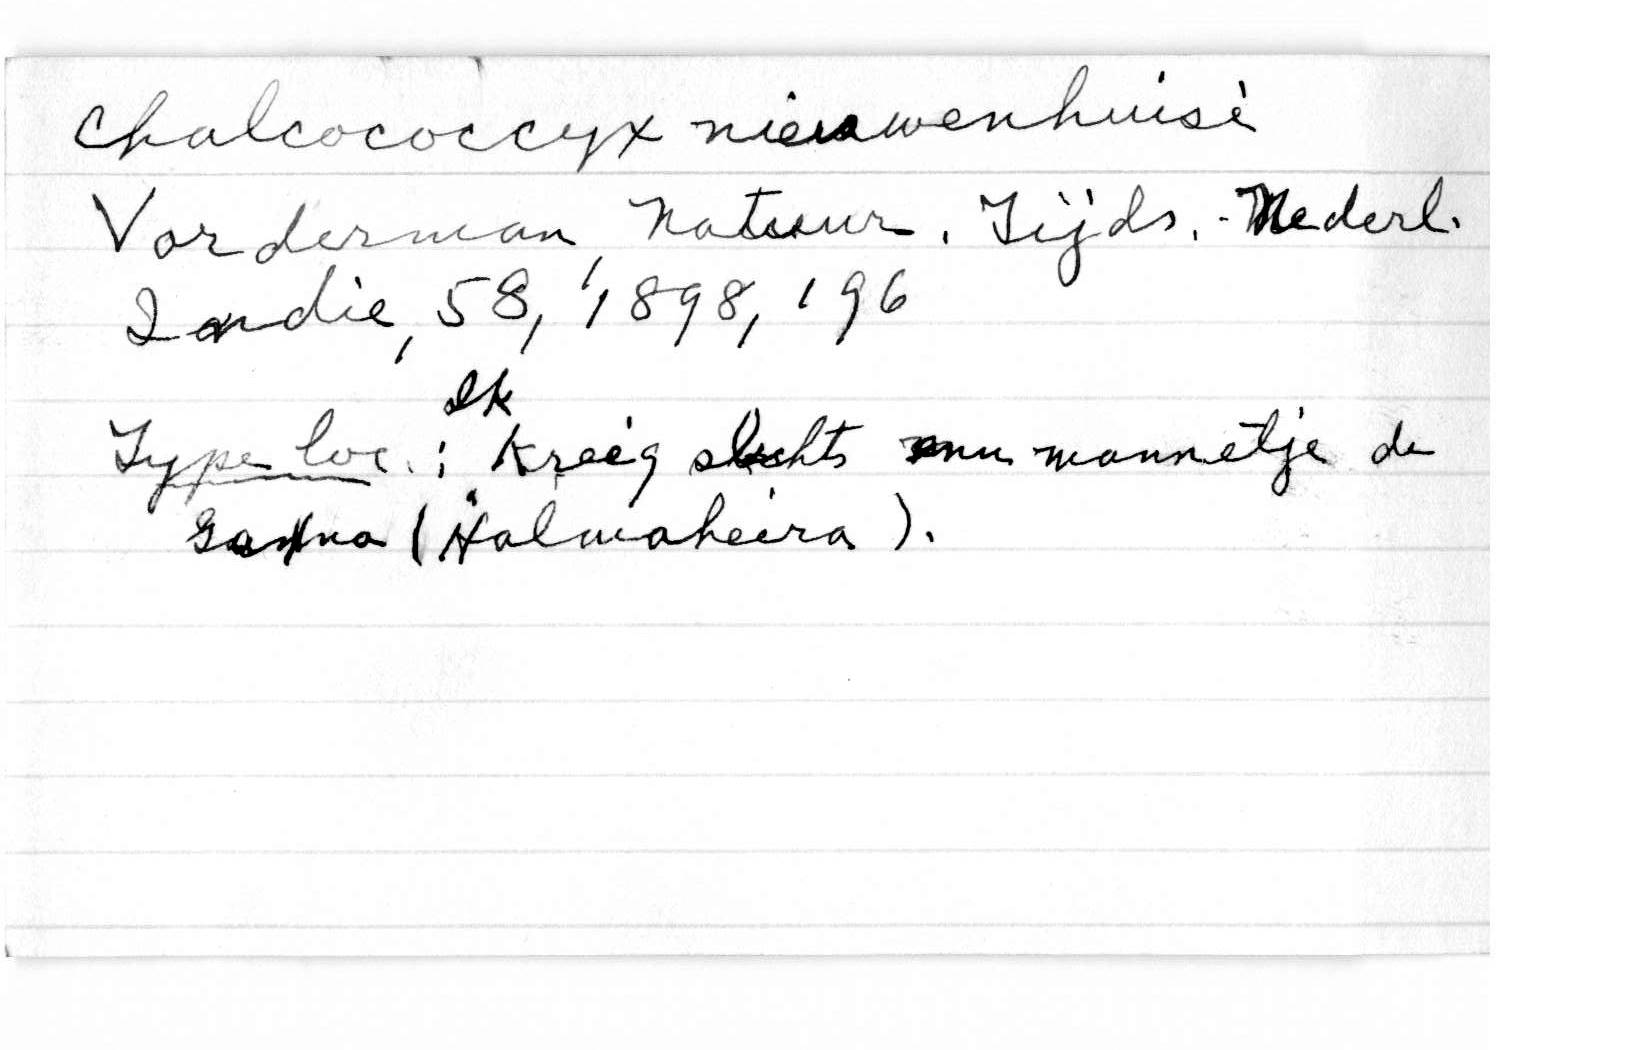 Chalcococcyx nieuwenhuisi
Vorderman, Natuur. Tijds. Nederl.
Indie, 58, 1898, 196
Ik
Type loc.: Kreeg slechts mannetje de
(Halmaheira).